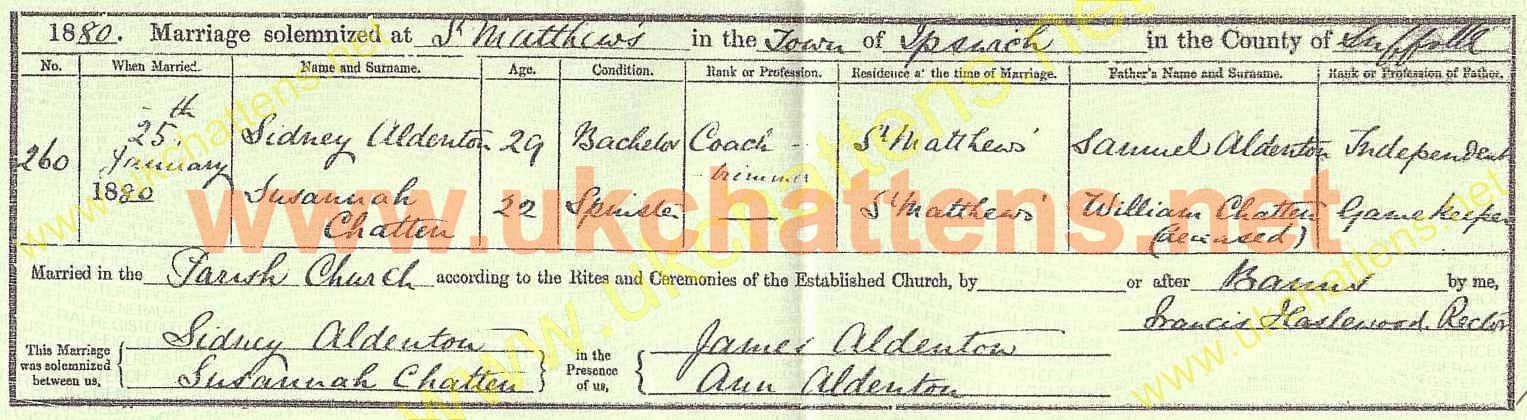 1880. Marriage solemnized at St Matthew's in the Town of Ipswich in the County of Suffolk
No. When Married. Name and Surname. Age. Condition. Rank or Profession. Residence at the time of Marriage. Father's Name and Surname. Rank or Profession of Father.
260 25th January 1880 Sidney Aldenton 29 Bachelor Coach-trimmer St Matthews' Samuel Aldenton Independent
Susannah Chatten 22 Spinster — St Matthews' William Chatten (deceased) Gamekeeper
www.ukchattens.net
Married in the Parish Church according to the Rites and Ceremonies of the Established Church, by or after Banns by me,
Francis Haslewood. Rector
This Marriage was solemnized between us, Sidney Aldenton
Susannah Chatten
in the Presence of us, James Aldenton
Ann Aldenton
www.ukchattens.net
www.ukchattens.net
www.ukchattens.net
www.ukchattens.net